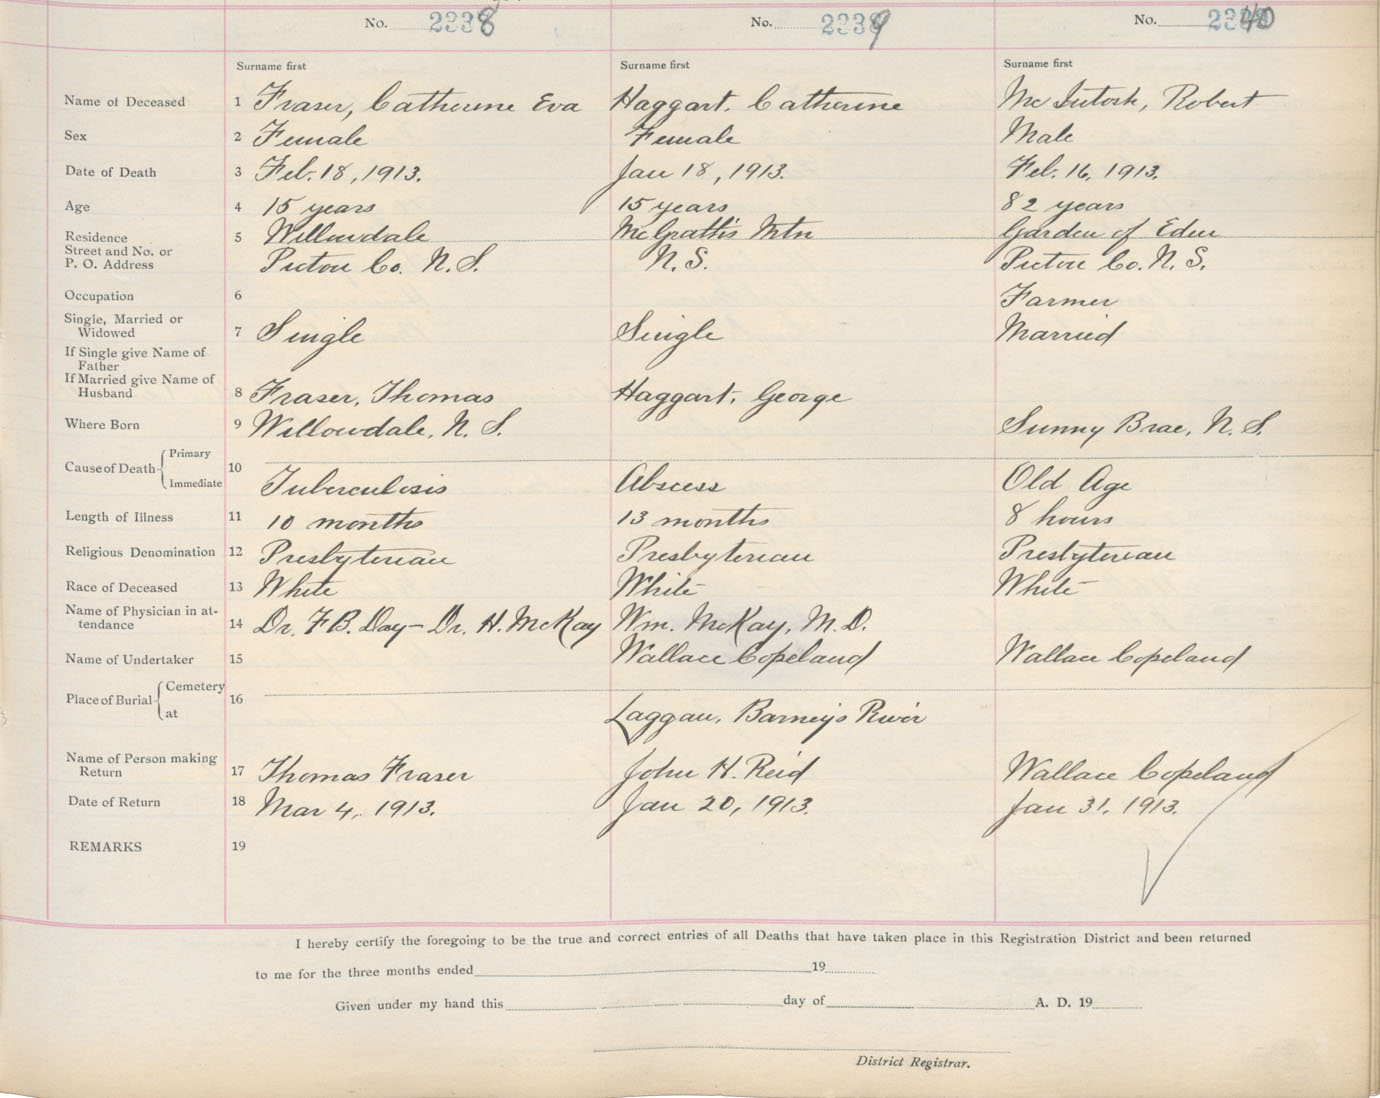 No. 2338 No. 2339 No. 2340
Surname first Surname first Surname first
Name of Deceased 1 Fraser, Catherine Eva Haggart, Catherine McIntosh, Robert
Sex 2 Female Female Male
Date of Death 3 Feb. 18, 1913. Jan 18, 1913. Feb. 16, 1913.
Age 4 15 years 15 years 82 years
Residence 5 Willowdale McGrath's Mtn Garden of Eden
Street and No. or
P. O. Address Pictou Co. N. S. N. S. Pictou Co. N. S.
Occupation 6 Farmer
Single, Married or
Widowed 7 Single Single Married
If Single give Name of
Father
If Married give Name of
Husband 8 Fraser, Thomas Haggart, George
Where Born 9 Willowdale, N. S. Sunny Brae, N. S.
Cause of Death Primary 10
Immediate Tuberculosis Abscess Old Age
Length of Illness 11 10 months 13 months 8 hours
Religious Denomination 12 Presbyterian Presbyterian Presbyterian
Race of Deceased 13 White White White
Name of Physician in at-
tendance 14 Dr. F B. Day - Dr. H. McKay Wm. McKay, M. D.
Name of Undertaker 15 Wallace Copeland Wallace Copeland
Place of Burial Cemetery 16
at Laggan, Barney's River
Name of Person making
Return 17 Thomas Fraser John H. Reid Wallace Copeland
Date of Return 18 Mar 4, 1913. Jan 20, 1913. Jan 31, 1913.
REMARKS 19
I hereby certify the foregoing to be the true and correct entries of all Deaths that have taken place in this Registration District and been returned
to me for the three months ended 19
Given under my hand this day of A. D. 19
District Registrar.